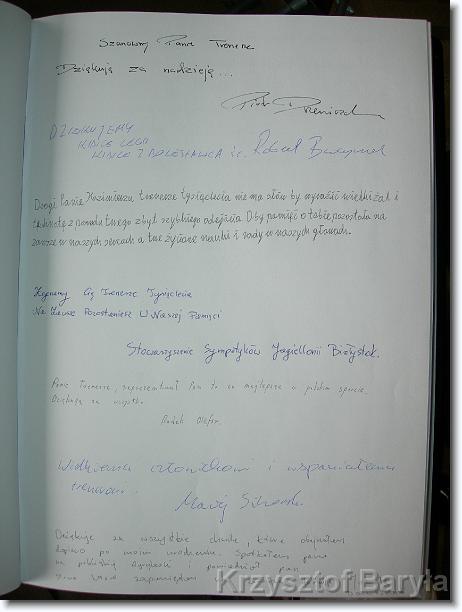 Szanowny Panie Trenerze
Dziękuję za nadzieję...
Piotr
DZIĘKUJEMY
KIBICE LEGII
KIBICE Z BOLESŁAWCA
Drogi Panie Kazimierzu, trenerze tysiąclecia nie ma słów by wyrazić wielki żal i
tęsknotę z powodu twego zbyt szybkiego odejścia. Oby pamięć o tobie pozostała na
zawsze w naszych sercach a twe życiowe nauki i rady w naszych głowach.
Żegnamy Cię Trenerze Tysiąclecia
Na Zawsze Pozostaniesz W Naszej Pamięci
Stowarzyszenie Sympatyków Jagiellonii Białystok.
Panie Trenerze, reprezentował Pan to co najlepsze w polskim sporcie.
Dziękuję za wszystko.
Wielkiemu człowiekowi i wspaniałemu
trenerowi.
Maciej
Dziękuję za wszystkie chwile, które
po moim urodzeniu. Spotkałem pana
na i powiedział pan
Krzysztof Baryła